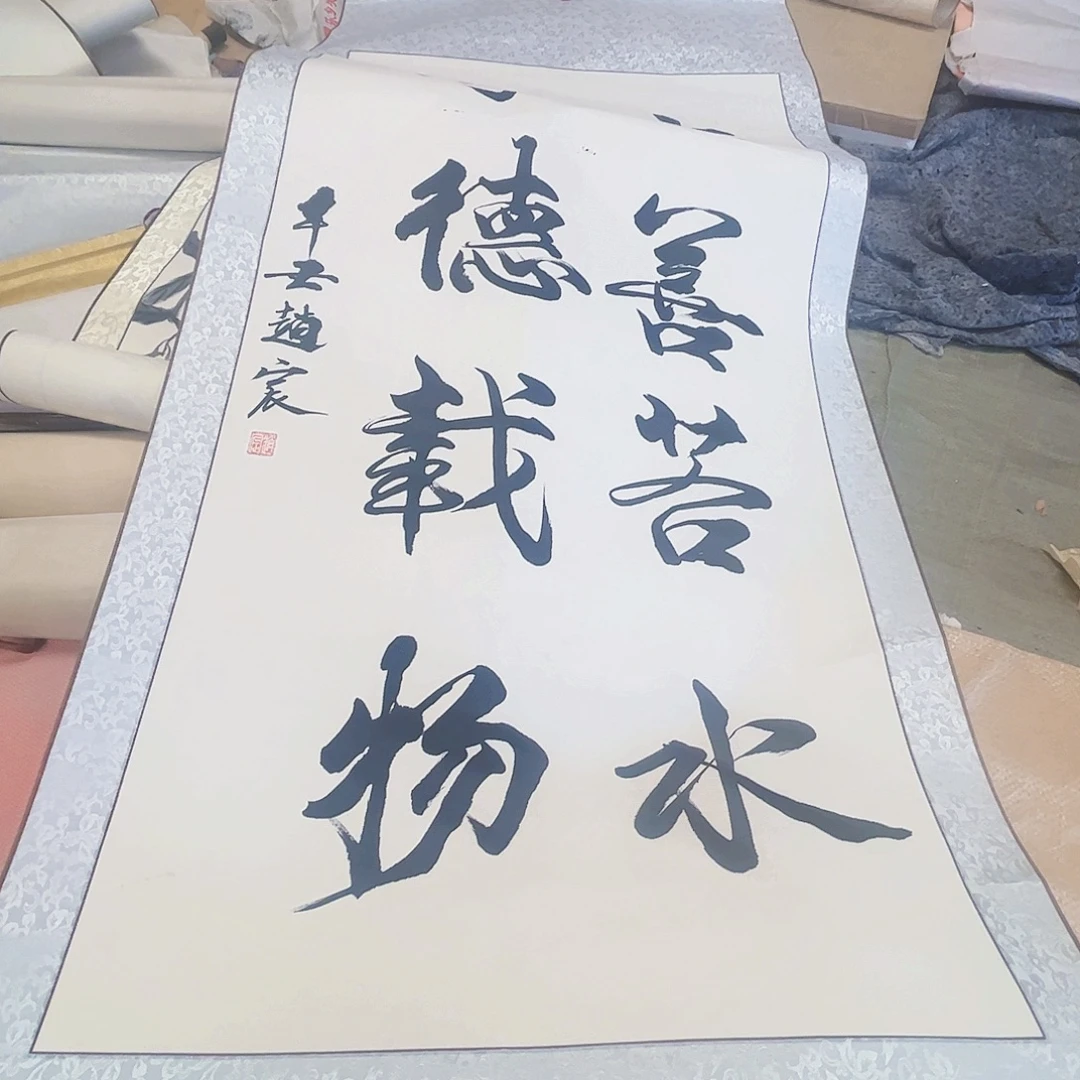 善若水
德載物
辛丑趙宸